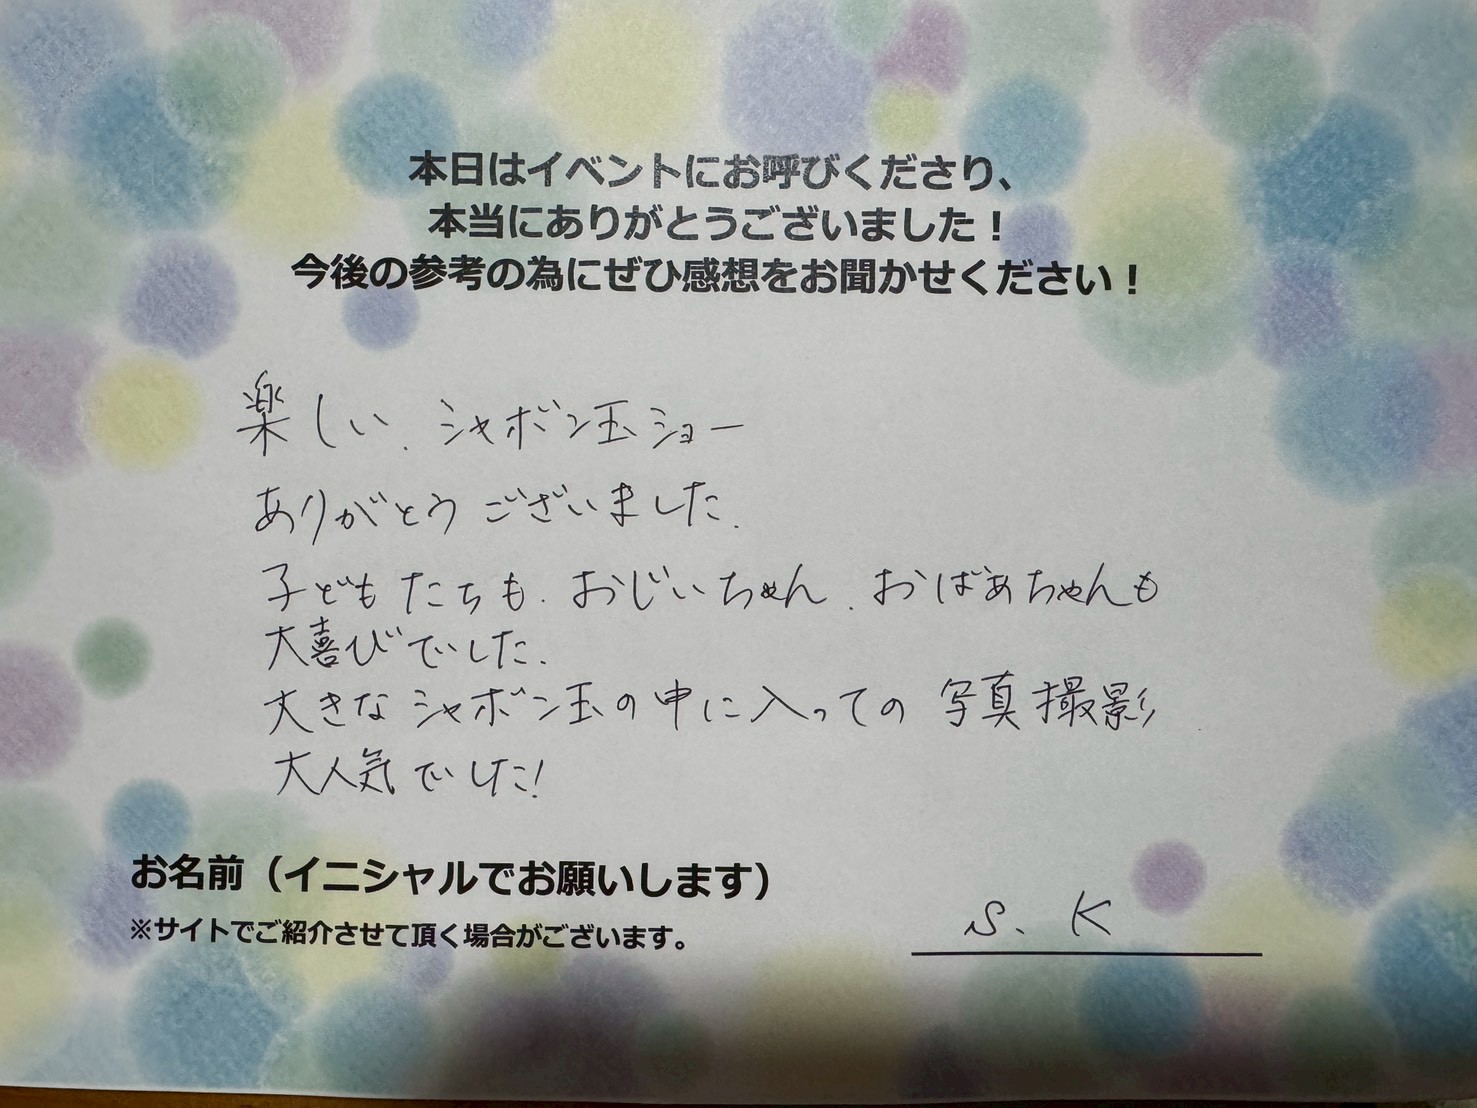 本日はイベントにお呼びくださり、
本当にありがとうございました！
今後の参考の為にぜひ感想をお聞かせください！
楽しい、シャボン玉ショー
ありがとうございました。
子どもたちも、おじいちゃん、おばあちゃんも
大喜びでした。
大きなシャボン玉の中に入っての写真撮影
大人気でした！
お名前（イニシャルでお願いします）
※サイトでご紹介させて頂く場合がございます。
S. K